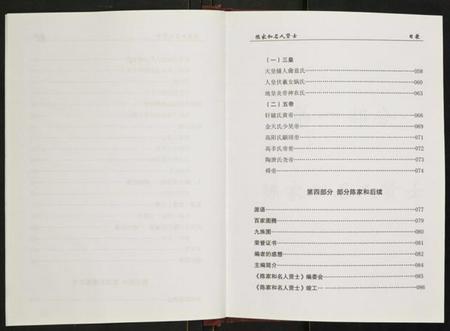 陈家和名人贤士 目录
（一）三皇
天皇燧人商兹氏 058
人皇伏羲女娲氏 060
地皇炎帝神农氏 063
（二）五帝
轩辕氏黄帝 066
金天氏少昊帝 069
高阳氏颛顼帝 071
高辛氏帝喾 072
陶唐氏尧帝 073
舜帝 074
第四部分 部分陈家和后续
源语 077
百家圆 079
九族图 080
荣誉证书 081
编者的感想 082
主编简介 084
《陈家和名人贤士》编委会 085
《陈家和名人贤士》竣工 086